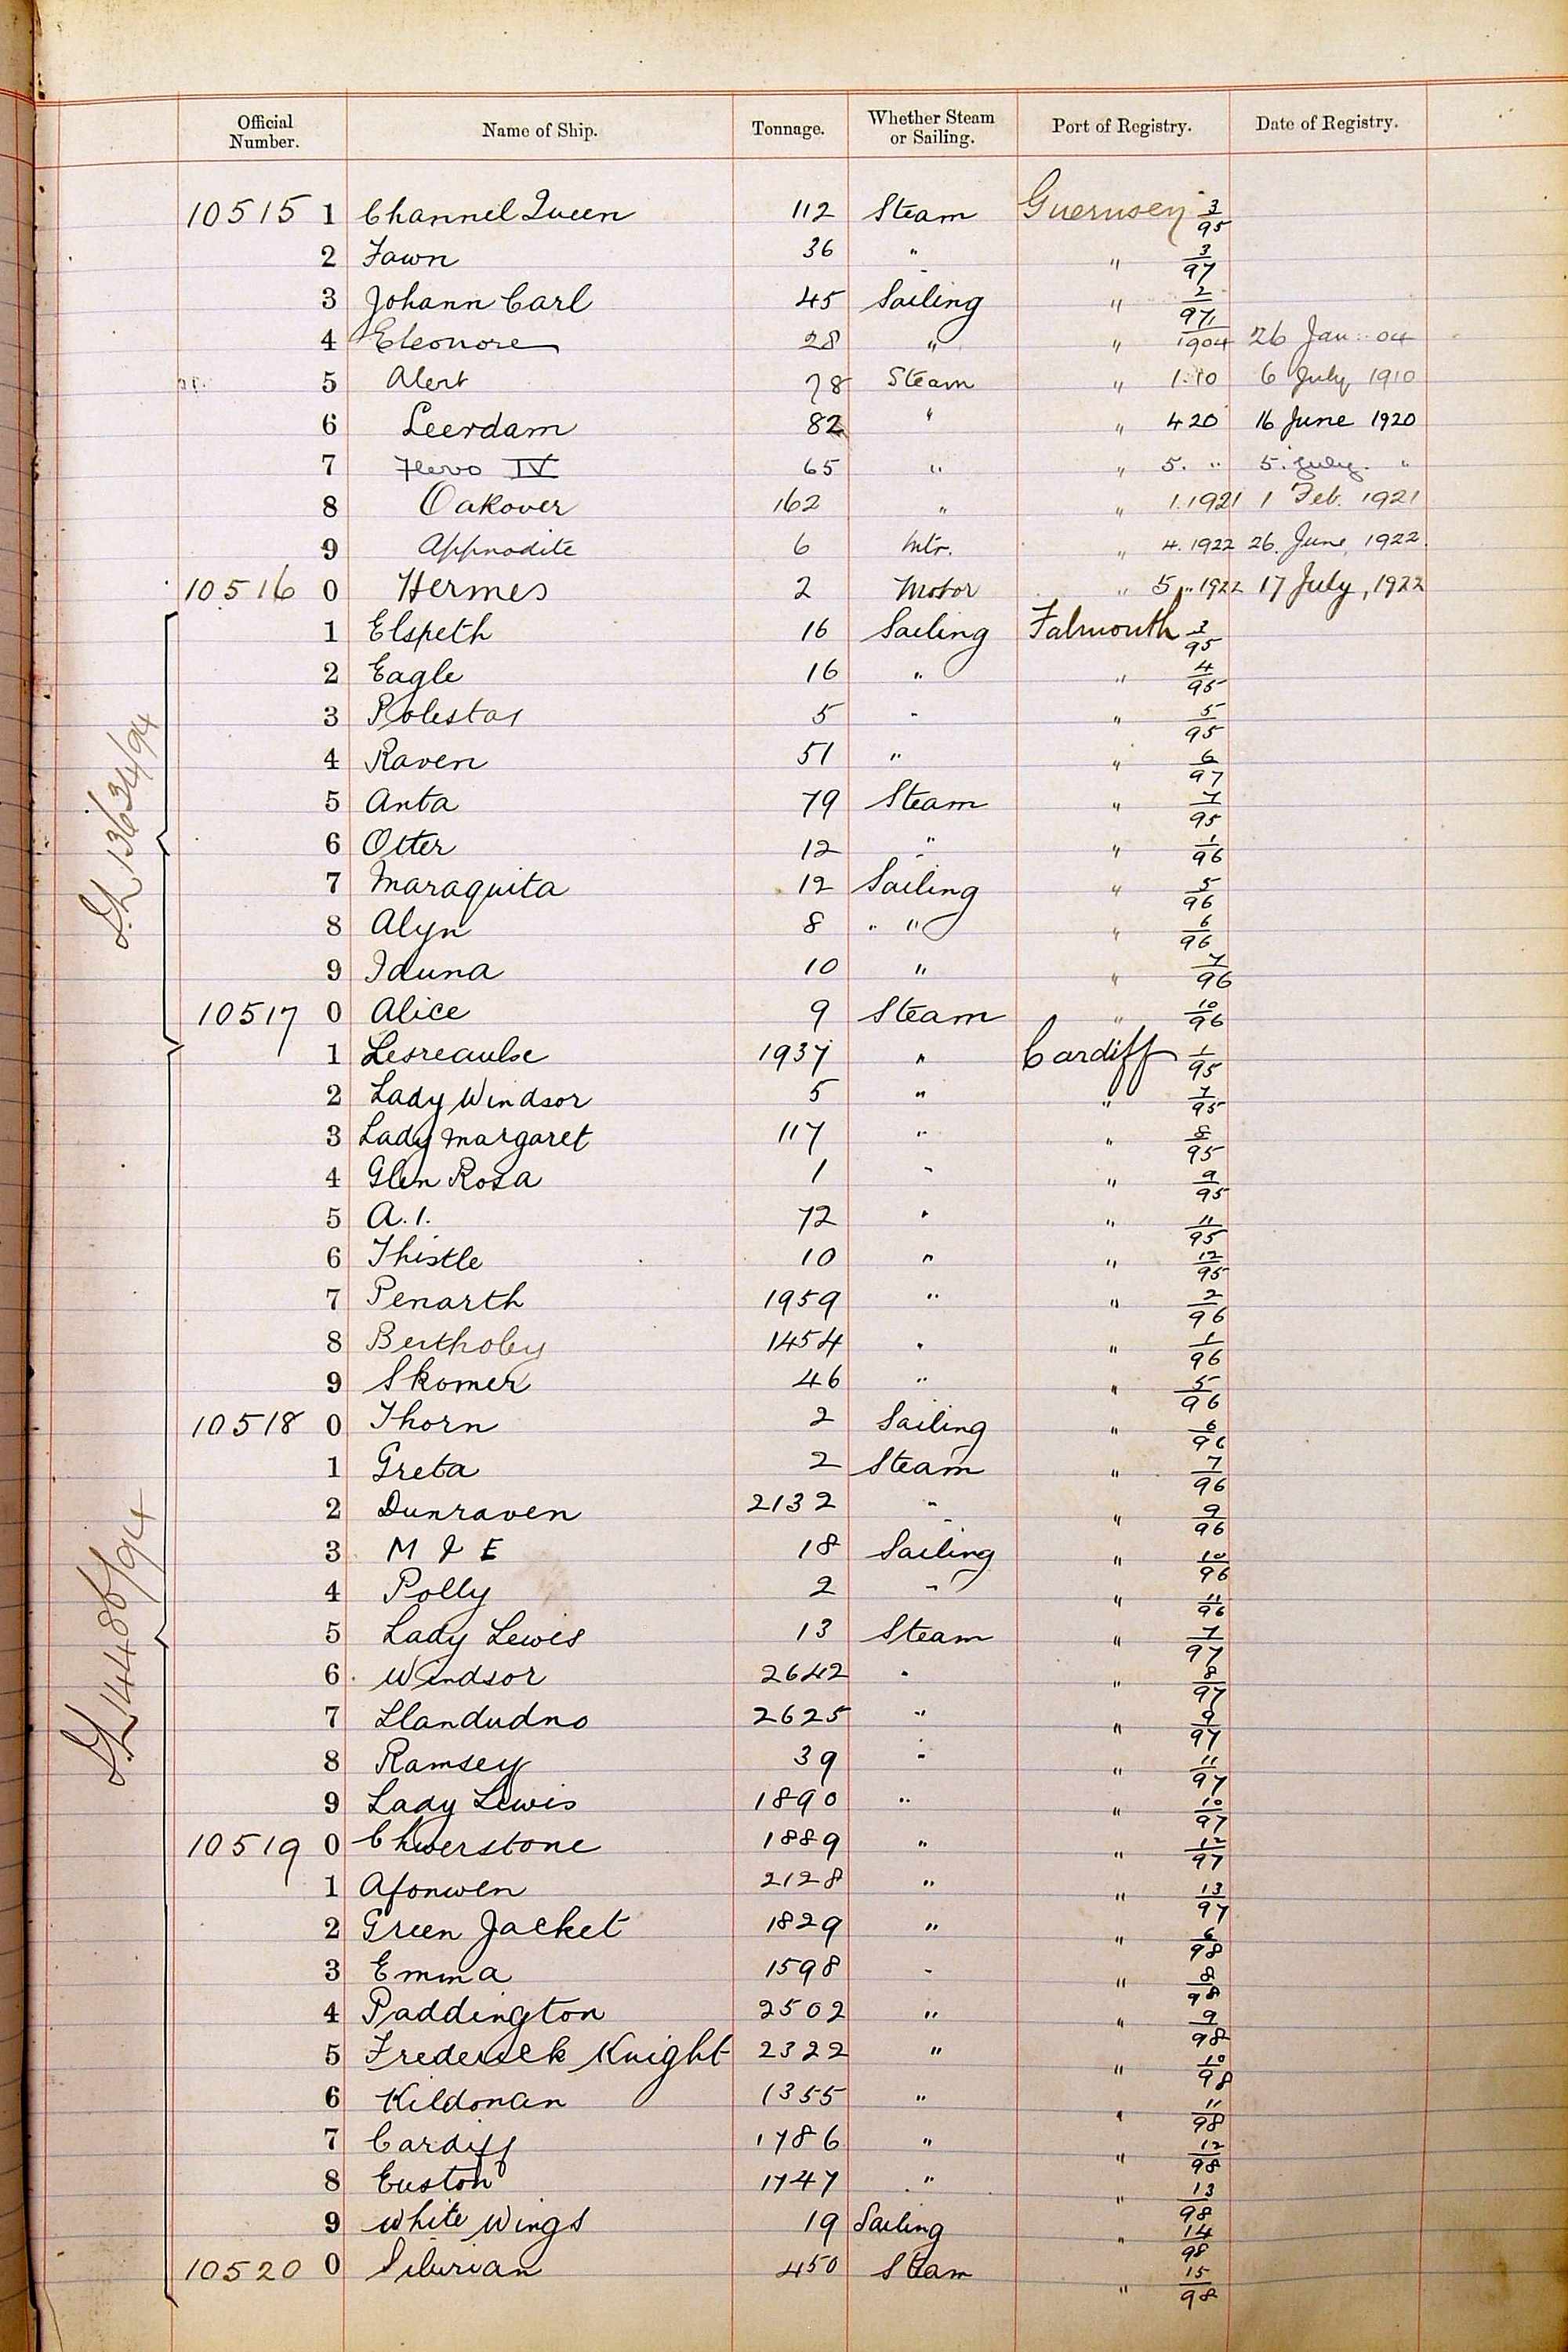 Official Number. Name of Ship. Tonnage. Whether Steam or Sailing. Port of Registry. Date of Registry.
10515 1 Channel Queen 112 Steam Guernsey 3/95
2 Fawn 36 " " 3/97
3 Johann Carl 45 Sailing " 2/97
4 Eleonore 28 " " 1/1904 26 Jan: 04
5 Alert 78 Steam " 1.10 6 July 1910
6 Leerdam 82 " " 4 20 16 June 1920
7 IV 65 " " 5. " 5. July. "
8 Oakover 162 " " 1.1921 1 Feb. 1921
9 Apphrodite 6 Mtr. " 4.1922 26. June, 1922.
10516 0 Hermes 2 Motor " 5 " 1922 17 July, 1922
1 Elspeth 16 Sailing Falmouth 3/95
2 Eagle 16 " " 4/95
3 Polestar 5 " " 5/95
4 Raven 51 " " 6/97
5 Anta 79 Steam " 7/95
6 Otter 12 " " 1/96
7 Maraquita 12 Sailing " 5/96
8 Alyn 8 " " 6/96
9 Iduna 10 " " 7/96
10517 0 Alice 9 Steam " 10/96
1 Lesreaulx 1937 " Cardiff 1/95
2 Lady Windsor 5 " " 7/95
3 Lady Margaret 117 " " 8/95
4 Glen Rosa 1 " " 9/95
5 A.1. 72 " " 11/95
6 Thistle 10 " " 12/95
7 Penarth 1959 " " 2/96
8 Bertholey 1454 " " 1/96
9 Skomer 46 " " 5/96
10518 0 Thorn 2 Sailing " 6/96
1 Greta 2 Steam " 7/96
2 Dunraven 2132 " " 9/96
3 M & E 18 Sailing " 10/96
4 Polly 2 " " 11/96
5 Lady Lewis 13 Steam " 7/97
6 Windsor 2642 " " 8/97
7 Llandudno 2625 " " 9/97
8 Ramsey 39 " " 11/97
9 Lady Lewis 1890 " " 10/97
10519 0 Chverstone 1889 " " 12/97
1 Afonwen 2128 " " 13/97
2 Green Jacket 1829 " " 6/98
3 Emma 1598 " " 8/98
4 Paddington 2502 " " 9/98
5 Frederick Knight 2322 " " 10/98
6 Kildonan 1355 " " 11/98
7 Cardiff 1786 " " 12/98
8 Euston 1747 " " 13/98
9 White Wings 19 Sailing " 14/98
10520 0 Silurian 450 Steam " 15/98
13634/94
14486/94